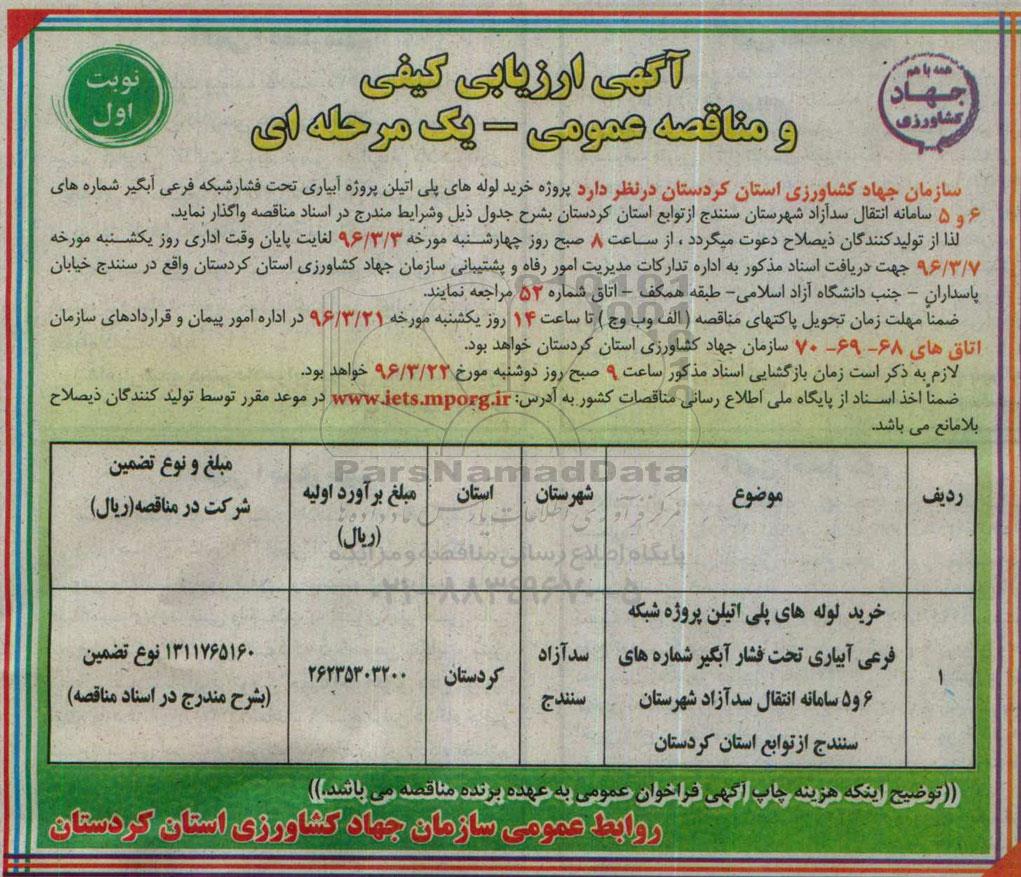 همه با هم
جهاد
کشاورزی
نوبت
اول
آگهی ارزیابی کیفی
و مناقصه عمومی – یک مرحله ای
سازمان جهاد کشاورزی استان کردستان درنظر دارد پروژه خرید لوله های پلی اتیلن پروژه آبیاری تحت فشارشبکه فرعی آبگیر شماره های
۶ و ۵ سامانه انتقال سدآزاد شهرستان سنندج ازتوابع استان کردستان بشرح جدول ذیل وشرایط مندرج در اسناد مناقصه واگذار نماید.
لذا از تولیدکنندگان ذیصلاح دعوت میگردد ، از ساعت ۸ صبح روز چهارشنبه مورخه ۹۶/۳/۳ لغایت پایان وقت اداری روز یکشنبه مورخه
۹۶/۳/۷ جهت دریافت اسناد مذکور به اداره تدارکات مدیریت امور رفاه و پشتیبانی سازمان جهاد کشاورزی استان کردستان واقع در سنندج خیابان
پاسداران – جنب دانشگاه آزاد اسلامی– طبقه همکف – اتاق شماره ۵۲ مراجعه نمایند.
ضمناً مهلت زمان تحویل پاکتهای مناقصه ( الف وب وج ) تا ساعت ۱۴ روز یکشنبه مورخه ۹۶/۳/۲۱ در اداره امور پیمان و قراردادهای سازمان
اتاق های ۶۸- ۶۹- ۷۰ سازمان جهاد کشاورزی استان کردستان خواهد بود.
لازم به ذکر است زمان بازگشایی اسناد مذکور ساعت ۹ صبح روز دوشنبه مورخ ۹۶/۳/۲۲ خواهد بود.
ضمناً اخذ اسناد از پایگاه ملی اطلاع رسانی مناقصات کشور به آدرس: www.iets.mporg.ir در موعد مقرر توسط تولید کنندگان ذیصلاح
بلامانع می باشد.
ParsNamadData
مرکز فرآوری اطلاعات پارس نماد داده ها
پایگاه اطلاع رسانی مناقصه و مزایده
۰۲۱-۸۸۳۴۹۶۷۰-۵
ردیف
موضوع
شهرستان
استان
مبلغ برآورد اولیه
(ریال)
مبلغ و نوع تضمین
شرکت در مناقصه(ریال)
۱
خرید لوله های پلی اتیلن پروژه شبکه
فرعی آبیاری تحت فشار آبگیر شماره های
۶ و۵ سامانه انتقال سدآزاد شهرستان
سنندج ازتوابع استان کردستان
سدآزاد
سنندج
کردستان
۲۶۲۳۵۳۰۳۲۰۰
۱۳۱۱۷۶۵۱۶۰ نوع تضمین
(بشرح مندرج در اسناد مناقصه)
((توضیح اینکه هزینه چاپ آگهی فراخوان عمومی به عهده برنده مناقصه می باشد.))
روابط عمومی سازمان جهاد کشاورزی استان کردستان